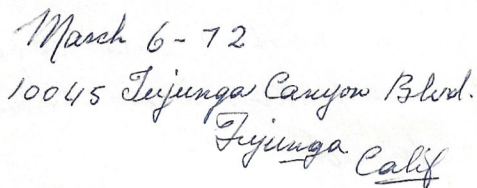 March 6-72
10045 Tujunga Canyon Blvd.
Tujunga Calif